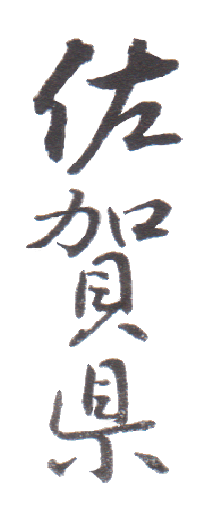 佐賀県